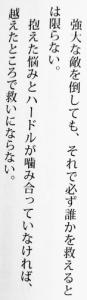 強大な敵を倒しても、それで必ず誰かを救えると
は限らない。
　抱えた悩みとハードルが噛み合っていなければ、
越えたところで救いにならない。